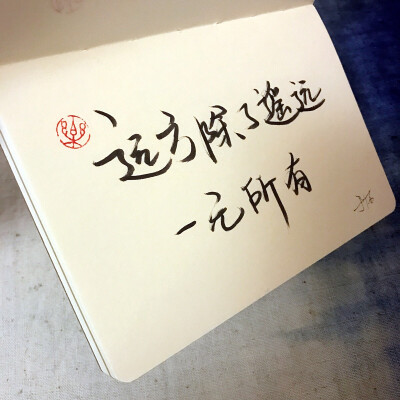 远方除了遥远
一无所有